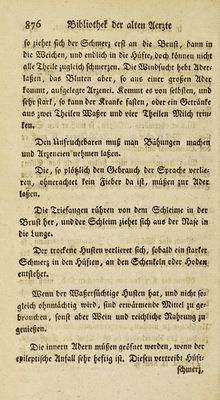 876 Bibliothek der alten Aerzte
so ziehet sich der Schmerz erst an die Brust, dann in
die Weichen, und endlich in die Hüfte, doch können nicht
alle Theile zugleich schmerzen. Die Windsucht hebt Ader-
laßen, das Bluten aber, so aus einer großen Ader
kommt, aufgelegte Arzenei. Kommt es von selbsten, und
sehr stark, so kann der Kranke fasten, oder ein Getränke
aus zwei Theilen Waßer und vier Theilen Milch trin-
ken.
Den Unfruchtbaren muß man Bähungen machen
und Arzeneien nehmen laßen.
Die, so plötzlich den Gebrauch der Sprache verlie-
ren, ohnerachtet kein Fieber da ist, müßen zur Ader
laßen.
Die Triefaugen rühren von dem Schleime in der
Brust her, und der Schleim ziehet sich aus der Nase in
die Lunge.
Der trockene Husten verlieret sich, sobald ein starker
Schmerz in den Hüften, an den Schenkeln oder Hoden
entstehet.
Wenn der Waßersüchtige Husten hat, und nicht so-
gleich ohnmächtig wird, sind erwärmende Mittel zu ge-
brauchen, sonst aber Wein und reichliche Nahrung zu
genießen.
Die innern Adern müßen geöfnet werden, wenn der
epileptische Anfall sehr heftig ist. Diesen vertreibt Hüft-
schmerz,